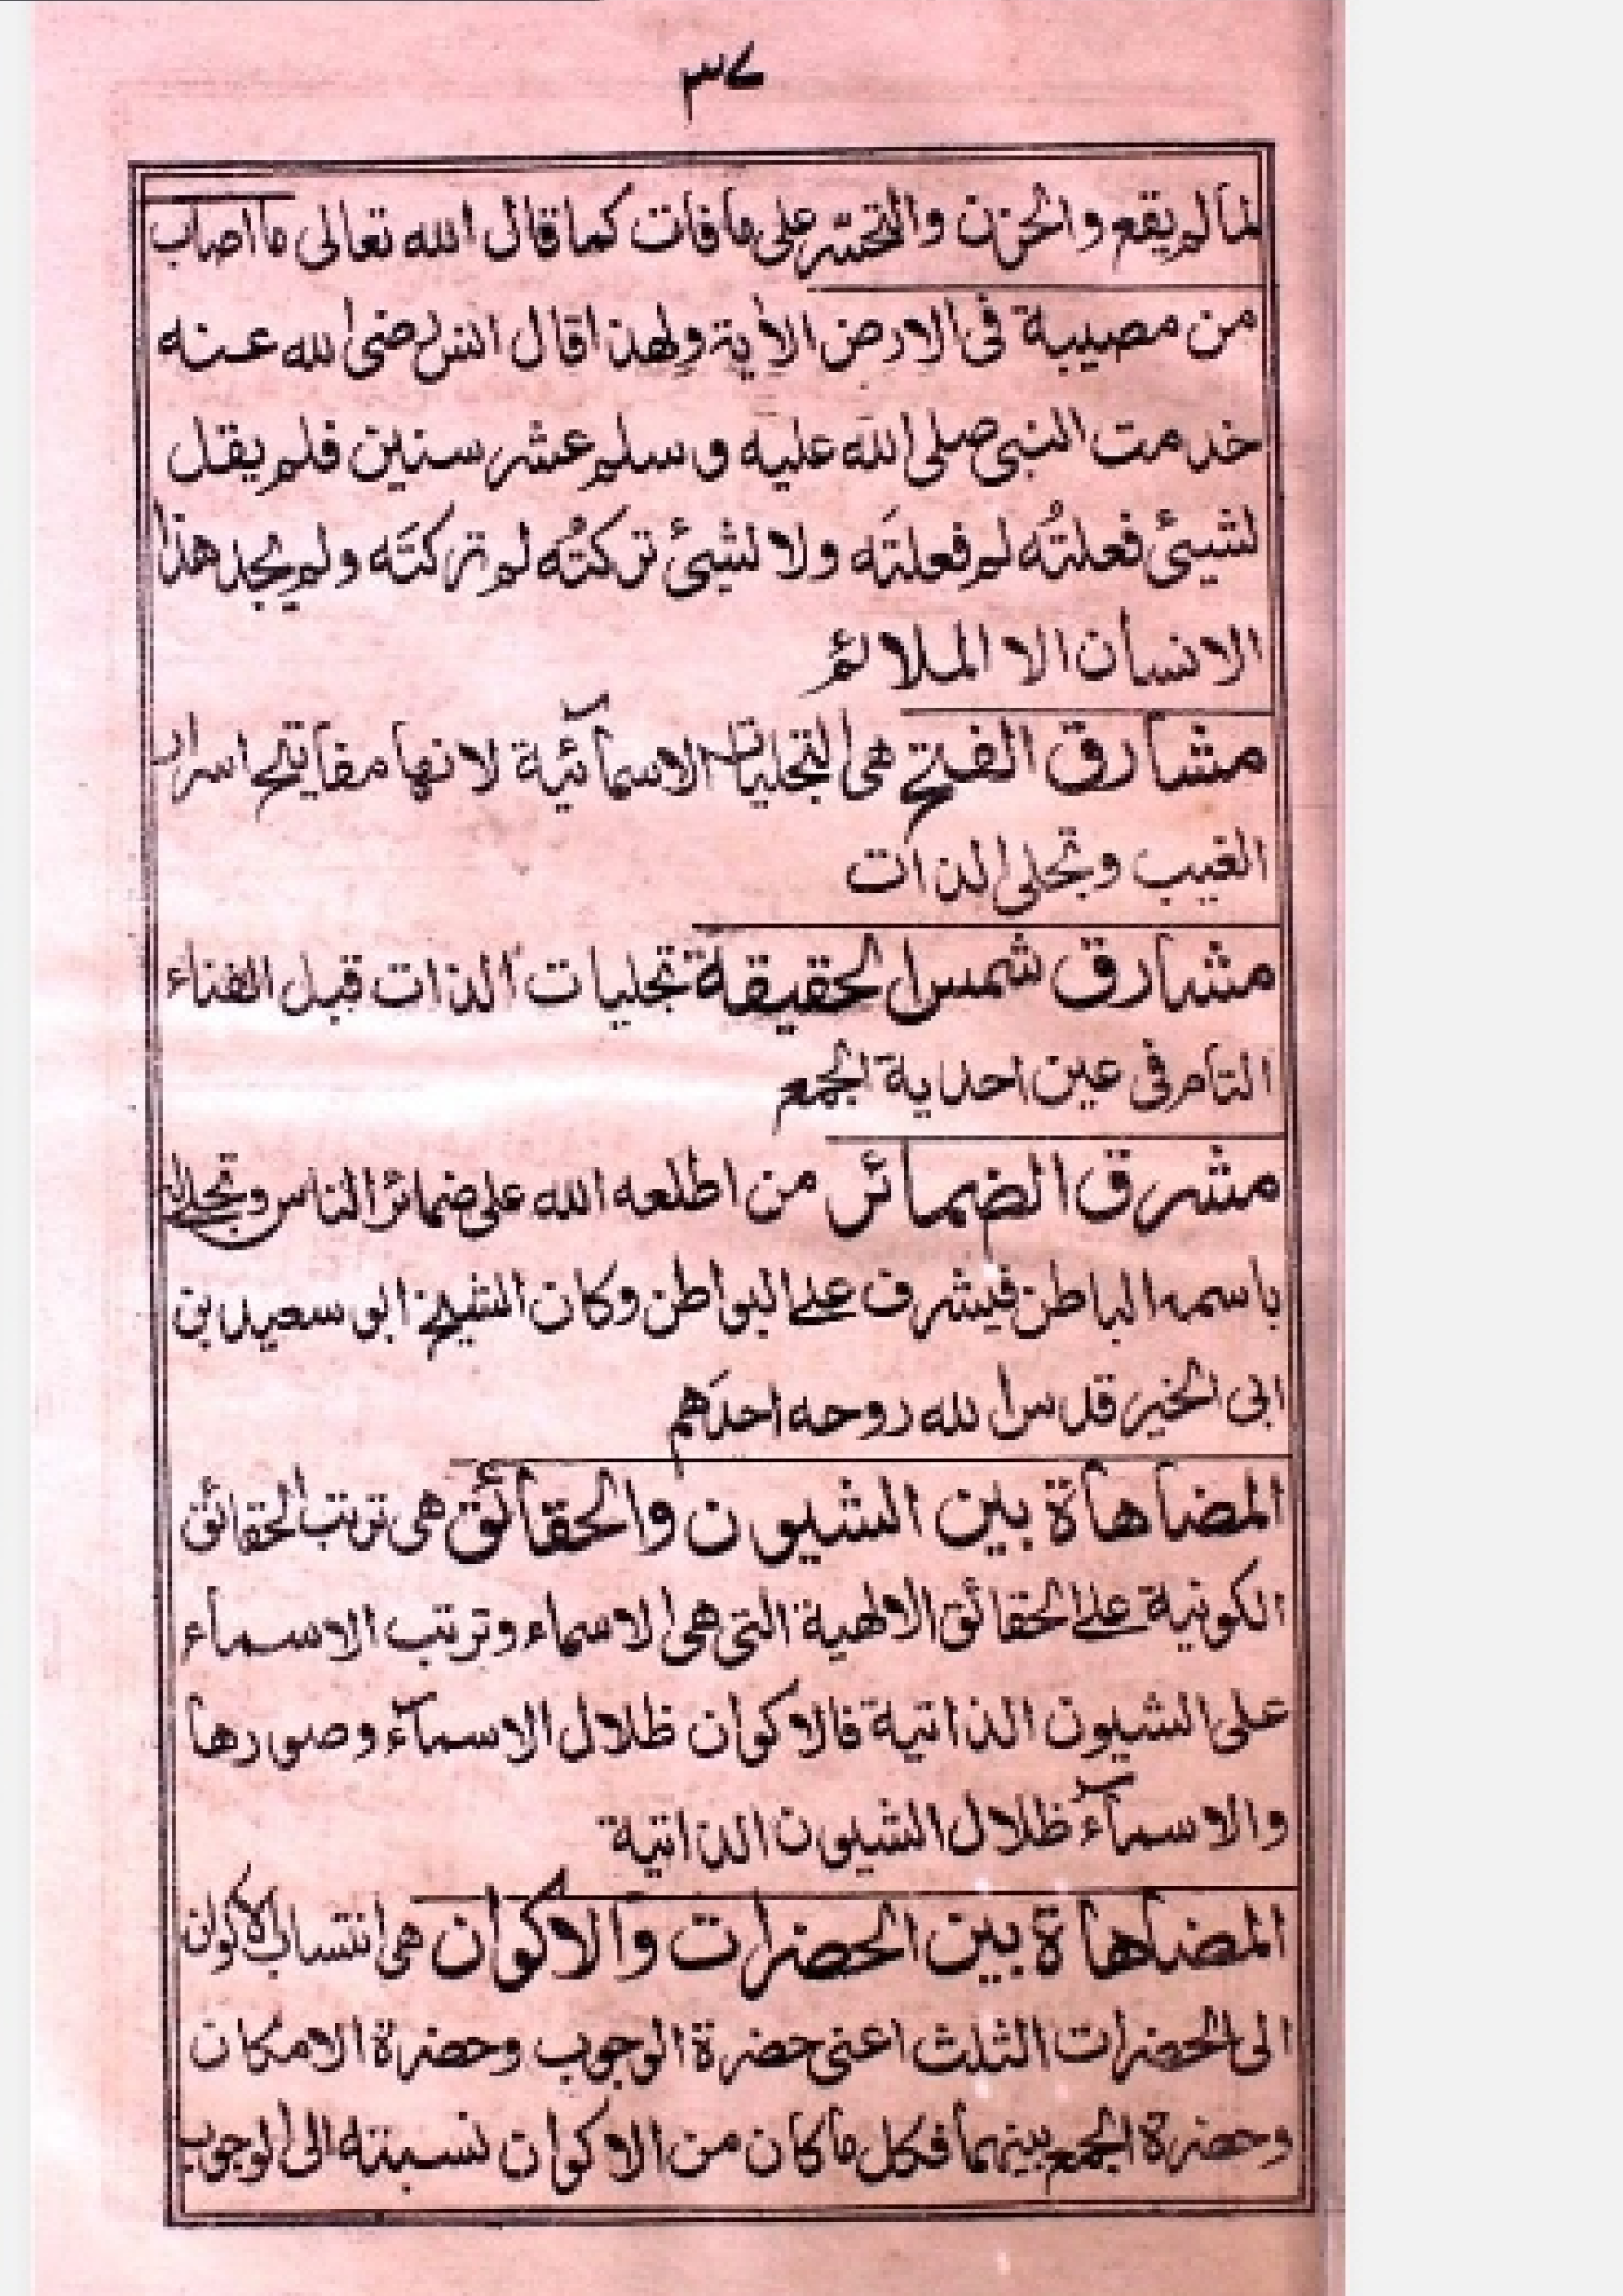 ٣٧
لما لم يقع والحزن والتحسّر على ما فات كما قال الله تعالى ما اصاب
من مصيبة فى الارض الأية ولهذا قال انس رضى الله عنه
خدمت النبى صلى الله عليه وسلم عشر سنين فلم يقل
لشيئ فعلتُه لم فعلتَه ولا لشيئ تركتُه لم تركتَه ولم يجد هذا
الانسان الا الملائم
مشارق الفتح هى التجليات الاسمآئية لانها مفاتيح اسرار
الغيب وتجلى الذات
مشارق شمس الحقيقة تجليات الذات قبل الفناء
التام فى عين احدية الجمع
مشرق الضمائر من اطلعه الله على ضمائر الناس وتجلى له
باسمه الباطن فيشرف على البواطن وكان الشيخ ابو سعيد بن
ابى الخير قدس الله روحه احدَهم
المضاهاة بين الشيون والحقائق هى ترتب الحقائق
الكونية على الحقائق الالهية التى هى الاسماء وترتب الاسماء
على الشيون الذاتية فالاكوان ظلال الاسمآء وصورها
والاسمآء ظلال الشيون الذاتية
المضاهاة بين الحضرات والاكوان هى انتساب الاكوان
الى الحضرات الثلث اعنى حضرة الوجوب وحضرة الامكان
وحضرة الجمع بينهما فكل ما كان من الاكوان نسبته الى الوجوب